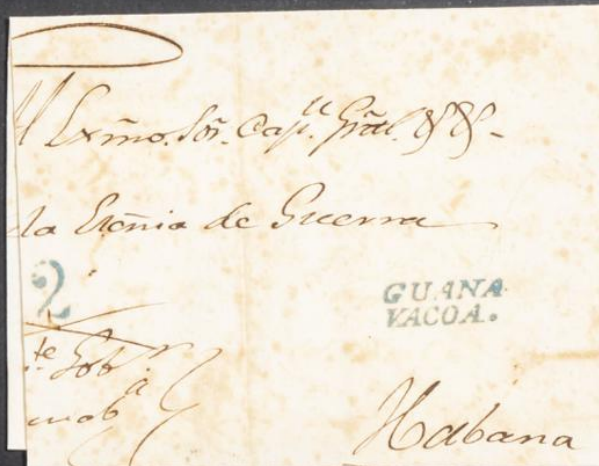 Al Exmõ. Sõr. Capn. Grãl. &&.
la Escñia de Guerra
2
GUANA
VACOA.
te Gobr.
Habana